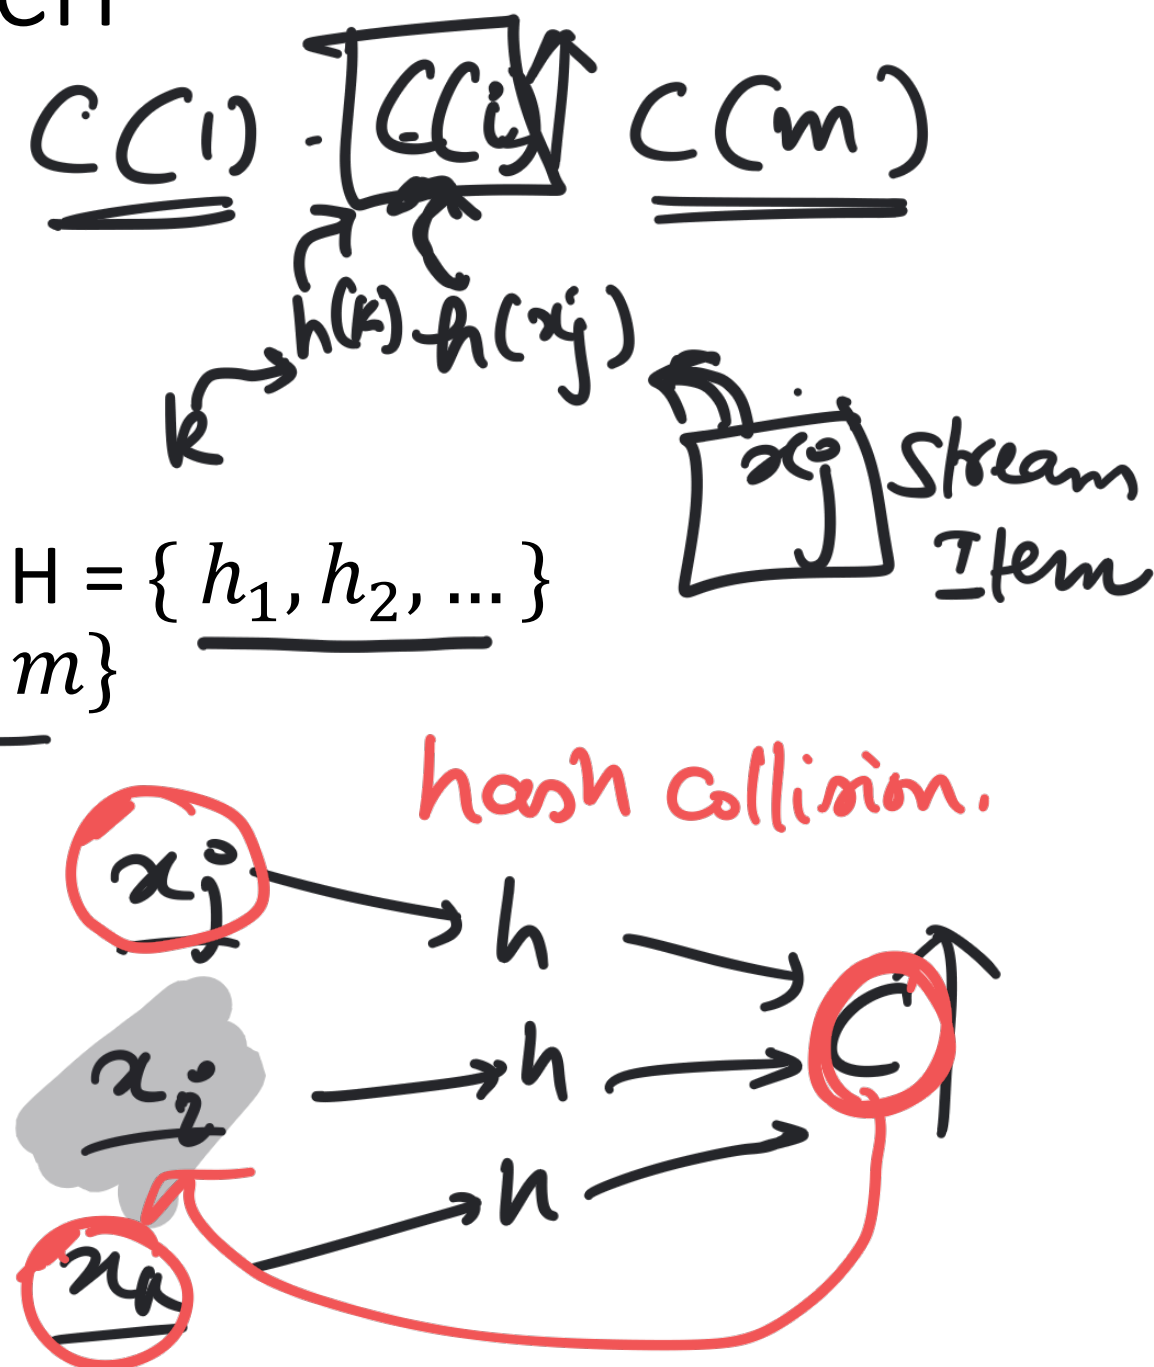 C(1) . C(i) C(m)
h(k) h(xj)
k
xj Stream
Item
H = { h₁, h₂, … }
m}
hash collision.
xj h
xi h C
xk h